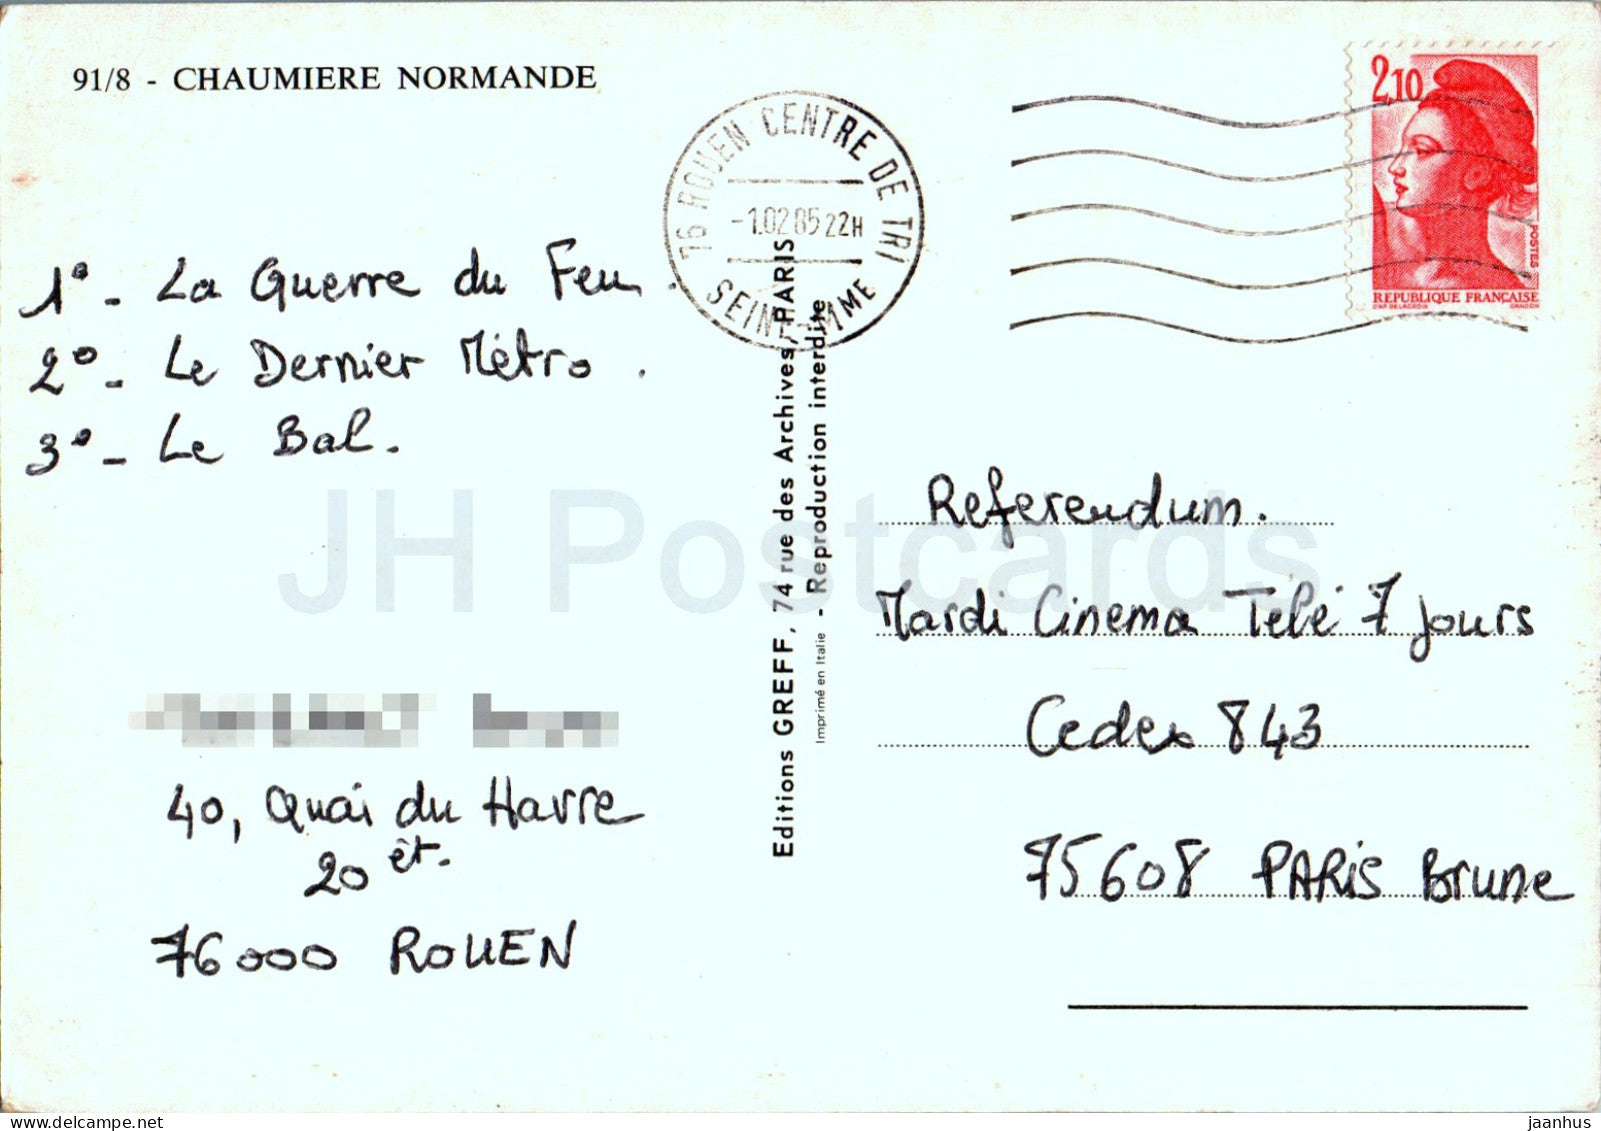 91/8 - CHAUMIERE NORMANDE
76 ROUEN CENTRE DE TRI
-1.02 85 22H
SEINE-MME
2,10
POSTES
REPUBLIQUE FRANÇAISE
D'AP. DELACROIX GANDON
1° - La Guerre du Feu.
2° - Le Dernier Métro.
3° - Le Bal.
40, Quai du Havre
20 ét.
76000 ROUEN
Editions GREFF, 74 rue des Archives, PARIS
Imprimé en Italie - Reproduction interdite
Referendum.
Mardi Cinema Télé 7 jours
Cedex 843
75608 PARIS Brune
JH Postcards
jaanhus
delcampe.net